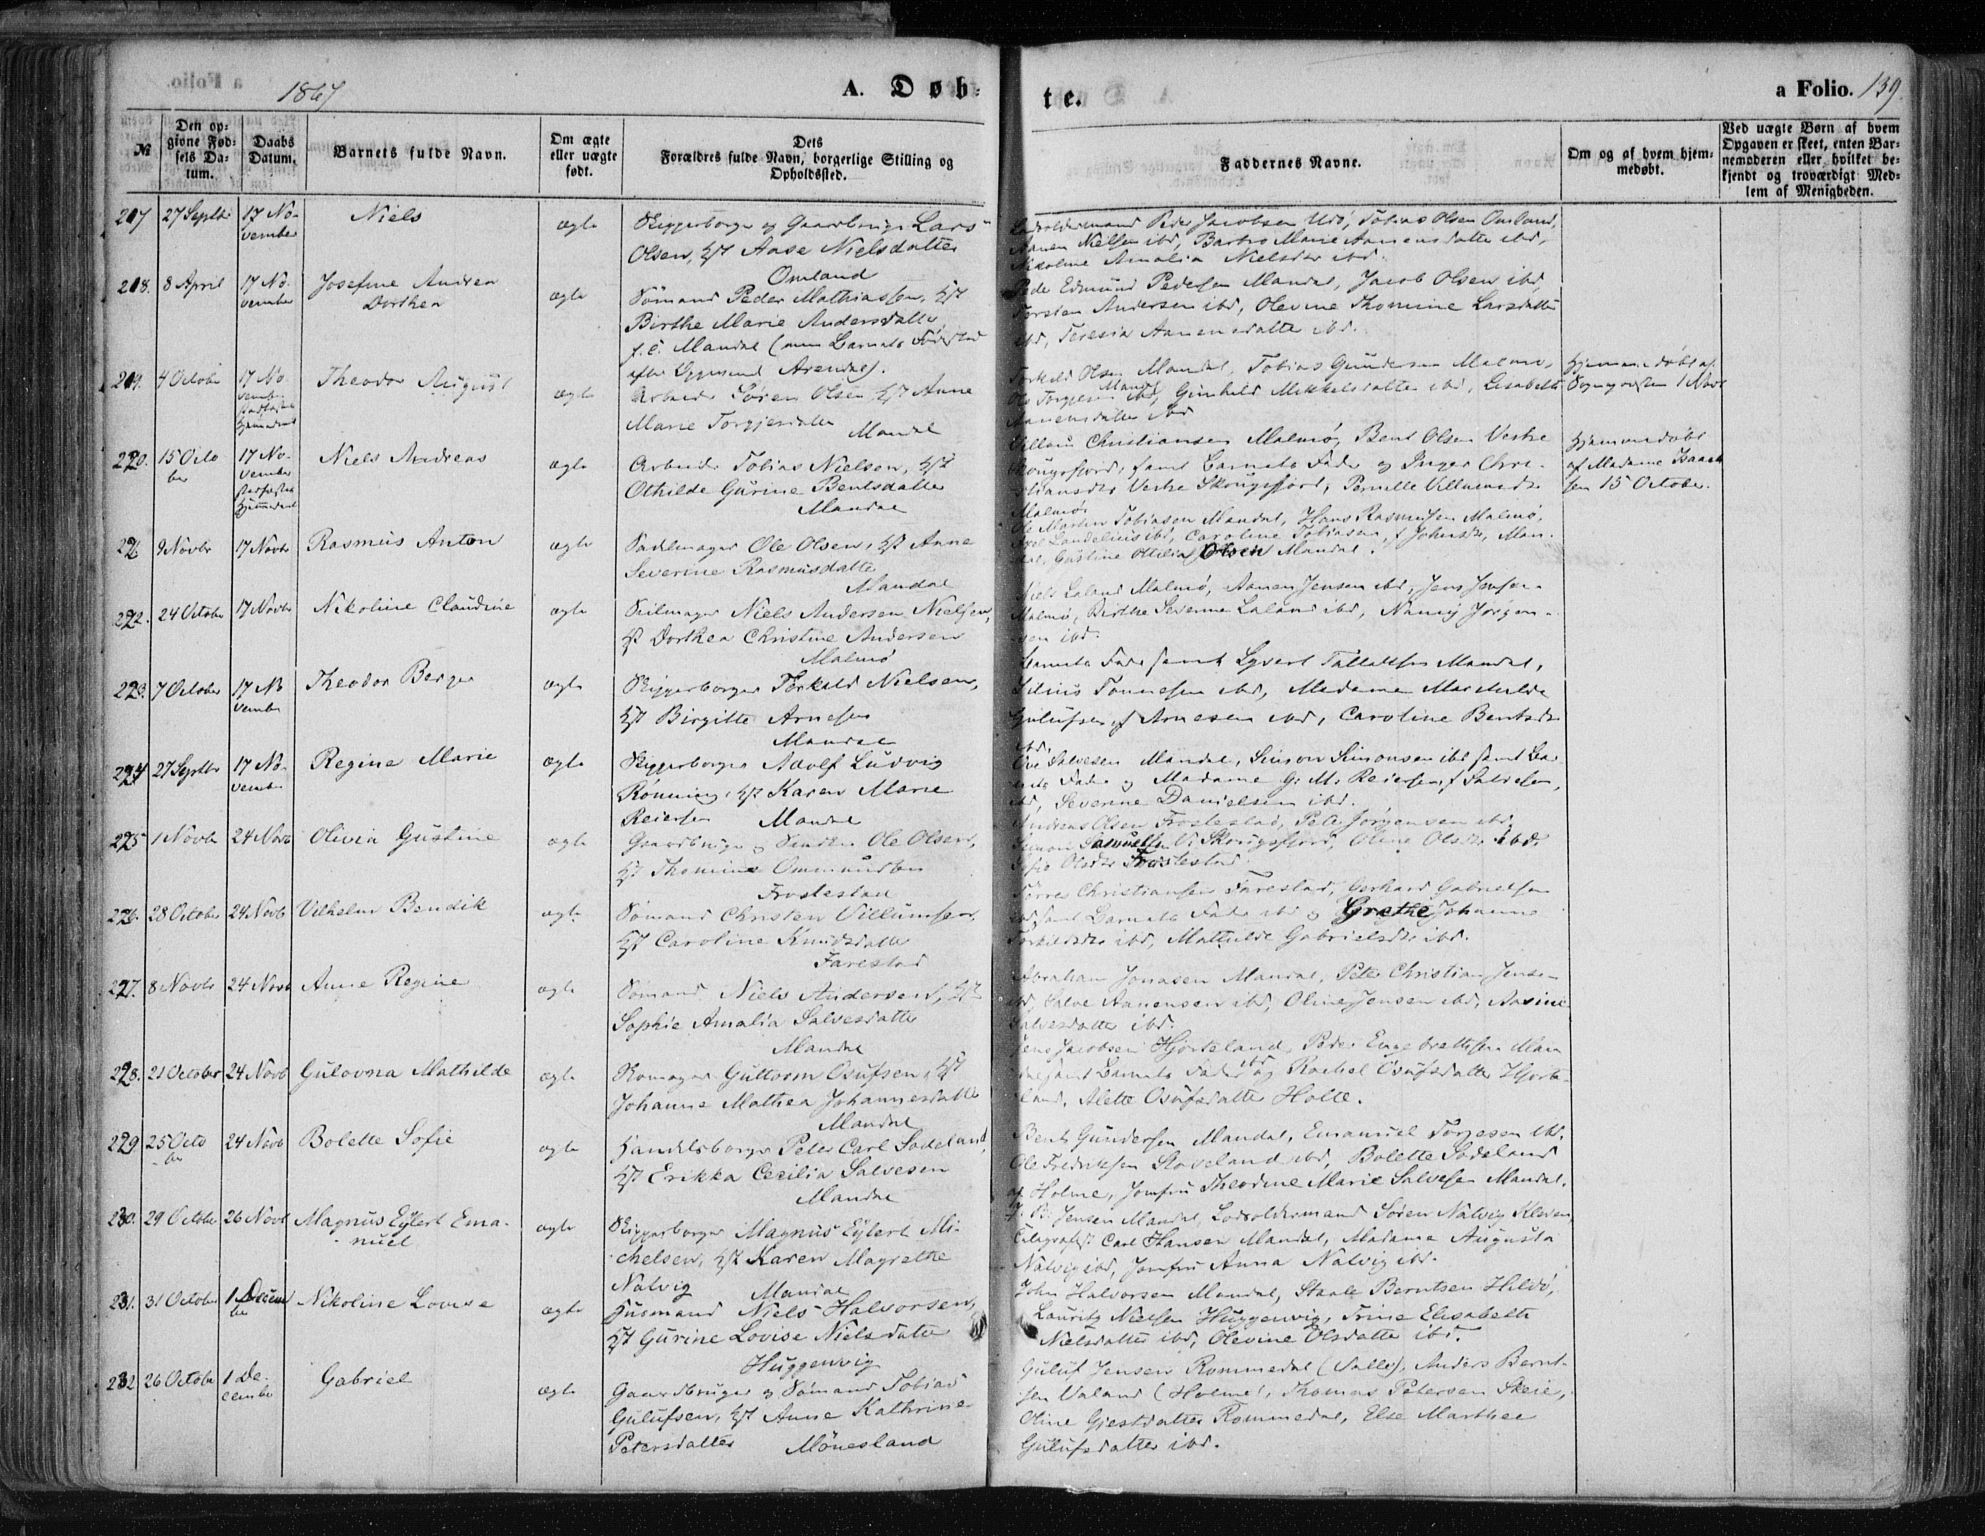 1867
A. Døb-
te.
a Folio. 139.
№
Den op-
givne Fød-
sels Da-
tum.
Daabs
Datum.
Barnets fulde Navn.
Om ægte
eller uægte
født.
Dets
Forældres fulde Navn, borgerlige Stilling og
Opholdssted.
Faddernes Navne.
Om og af hvem hjem-
medøbt.
Ved uægte Børn af hvem
Opgaven er skeet, enten Bar-
nemoderen eller hvilket be-
kjendt og troværdigt Med-
lem af Menigheden.
217 27 Septbr 17 No-
vember
Niels
ægte
Skipperborger og Gaardbruger Lars
Olsen, Hst Aase Nielsdatter
Omland
Lodsoldermand Peder Jacobsen Udø, Tobias Olsen Omland,
Aanen Nielsen ibd, Barbro Marie Aanensdatter ibd,
Nikoline Amalia Nielsdtr ibd.
218. 8 April 17 No-
vember
Josefine Andrea
Dorthea
ægte
Sømand Peder Mathiassen, Hst
Birthe Marie Andersdatter
f. e. Mandal (men Barnets Fødested
efter Opgivende Arendal).
Peder Edmund Pedersen Mandal, Jacob Olsen ibd,
Torsten Andersen ibd, Olevine Thomine Larsdatter
ibd, Teresia Aanensdatter ibd.
219. 4 October 17 No
vember
stadfæstet
Hjemmedaab
Theodor August
ægte
Arbeider Søren Olsen, Hst Anne
Marie Torgjersdatter
Mandal
Torkeld Olsen Mandal, Tobias Gundersen Malmø,
Ole Torgjersen ibd, Gunhild Mikkelsdatter ibd, Elisabeth
Mandal
Aanensdatter ibd
Hjemmedøbt af
Sognepresten 1 Novbr
220. 15 Octo
ber
17 No-
vember
stadfæstet
Hjemmedaab
Niels Andreas
ægte
Arbeider Tobias Nielsen, Hst
Othilde Gurine Bentsdatter
Mandal
Villum Christiansen Malmø, Bent Olsen Vestre
Skougsfjord, samt Barnets Fader og Inger Chri-
stiansdtr Vestre Skougsfjord, Pernille Villumsdtr
Malmø.
Hjemmedøbt
af Madame Isaack
sen 15 October.
221 9 Novbr 17 Novbr Rasmus Anton
ægte
Sadelmager Ole Olsen, Hst Anne
Severine Rasmusdatter
Mandal
Ole Martin Tobiasen Mandal, Hans Rasmussen Malmø,
Axel Landelius ibd, Caroline Tobiasen f Johnsdtr, Man-
dal, Gustine Ottilia Olsen Mandal.
222. 24 October 17 Novbr Nikoline Claudine
ægte
Seilmager Niels Andersen Nielsen,
Hst Dorthea Christine Andersen
Malmø
Niels Laland Malmø, Aanen Jensen ibd, Jens Jensen
Malmø, Birthe Severine Laland ibd, Nanny Jørgen-
sen ibd.
223. 7 October 17 No
vember
Theodor Berger
ægte
Skipperborger Torkeld Nielsen,
Hst Birgitte Arnesen
Mandal
Barnets Fader samt Syvert Tallaksen Mandal,
Titius Tønnesen ibd, Madame Mathilde
Gulufsen f Arnesen ibd, Caroline Bentsdtr
ibd.
224 27 Septbr 17 No-
vember
Regine Marie
ægte
Skipperborger Adolf Ludvig
Rønning, Hst Karen Marie
Reiersen Mandal
Ole Salvesen Mandal, Simon Simonsen ibd samt Bar-
nets Fader og Madame G. M. Reiersen f Salvesen,
ibd, Severine Danielsen ibd.
225 1 Novbr 24 Novb Olivia Gustine
ægte
Gaardbruger & Snedker Ole Olsen,
Hst Thomine Ommundsen
Frostestad
Andreas Olsen Frostestad, Peder Jørgensen ibd,
Simon Samuelsen V. Skougsfjord, Oline Olsdtr ibd,
Sofie Olsdtr Frostestad.
226. 28 October 24 Novb Vilhelm Bendik
ægte
Sømand Christen Villumsen,
Hst Caroline Knudsdatter
Farestad
Tørres Christiansen Farestad, Gerhard Gabrielsen
ibd samt Barnets Fader ibd og Grethe Johanne
Torkildsdtr ibd, Mathilde Gabrielsdtr ibd.
227. 8 Novbr 24 Novb Anne Regine
ægte
Sømand Niels Andersen, Hst
Sophie Amalia Salvesdatter
Mandal
Abraham Jonasen Mandal, Peter Christian Jensen
ibd, Salve Aanensen ibd, Oline Jensen ibd, Aasine
Salvesdatter ibd.
228. 21 October 24 Novb Gulovna Mathilde
ægte
Skomager Guttorm Osufsen, Hst
Johanne Mathea Johannesdatter
Mandal
Jens Jacobsen Hjorteland, Peder Engebrethsen Man
dal samt Barnets Fader ibd og Rachel Osufsdatter Hjorte-
land, Alette Osufsdatter Holte.
229 25 Octo
ber
24 Novb Bolette Sofie
ægte
Handelsborger Peter Carl Sodeland,
Hst Erikka Cecilia Salvesen
Mandal
Bent Gundersen Mandal, Emanuel Torjesen ibd.
Ole Fredriksen Stoveland ibd, Bolette Sodeland
af Holme, Jomfru Theodine Marie Salvesen Mandal.
230. 29 October 26 Novb Magnus Eylert Ema-
nuel
ægte
Skipperborger Magnus Eylert Mi-
chelsen, Hst Karen Magrethe
Natvig Mandal
J. B. Jensen Mandal, Lodsoldermand Søren Natvig Kleven,
Telegrafist Carl Hansen Mandal, Madame Augusta
Natvig ibd, Jomfru Anna Natvig ibd.
231. 31 October 1 Decem
ber
Nikoline Lovise
ægte
Husmand Niels Halvorsen,
Hst Gurine Lovise Nielsdatter
Huggenvig
John Halvorsen Mandal, Staale Berntsen Hildø,
Lauritz Nielsen Huggenvig, Trine Elisabeth
Nielsdatter ibd, Olevine Olsdatter ibd.
232 26 October 1 De-
cember
Gabriel
ægte
Gaardbruger og Sømand Tobias
Gulufsen, Hst Anne Kathrine
Petersdatter Mønesland
Guluf Jensen Rommedal (Halse), Anders Bernt-
sen Valand (Holme), Thomas Petersen Skeie,
Oline Gjestdatter Rommedal, Else Marthea
Gulufsdatter ibd.